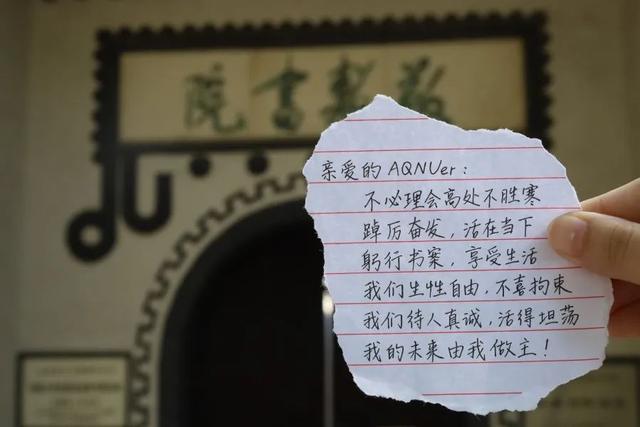 敬敷書院
亲爱的 AQNUer：
不必理会高处不胜寒
踔厉奋发，活在当下
躬行书案，享受生活
我们生性自由，不喜拘束
我们待人真诚，活得坦荡
我的未来由我做主！